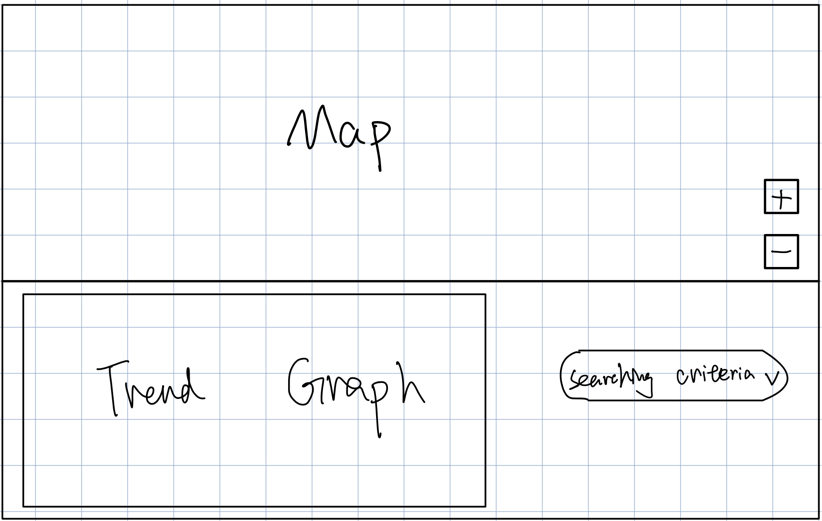 Map
+
-
Trend Graph
searching criteria v